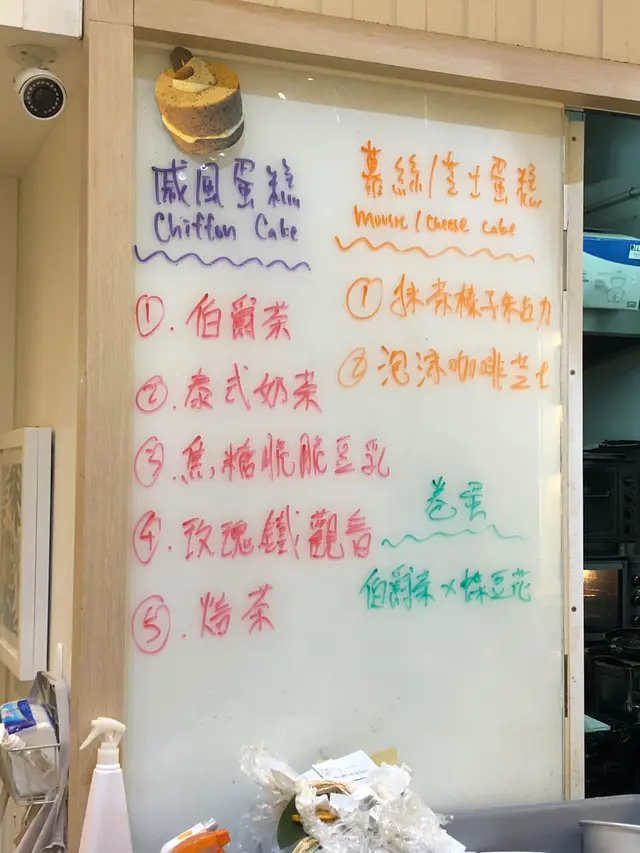 戚風蛋糕
Chiffon Cake
① . 伯爵茶
② . 泰式奶茶
③ . 焦糖脆脆豆乳
④ . 玫瑰鐵觀音
⑤ . 焙茶
慕絲/芝士蛋糕
Mousse / Cheese Cake
① 抹茶榛子朱古力
② 泡沫咖啡芝士
卷蛋
伯爵茶 x 蝶豆花